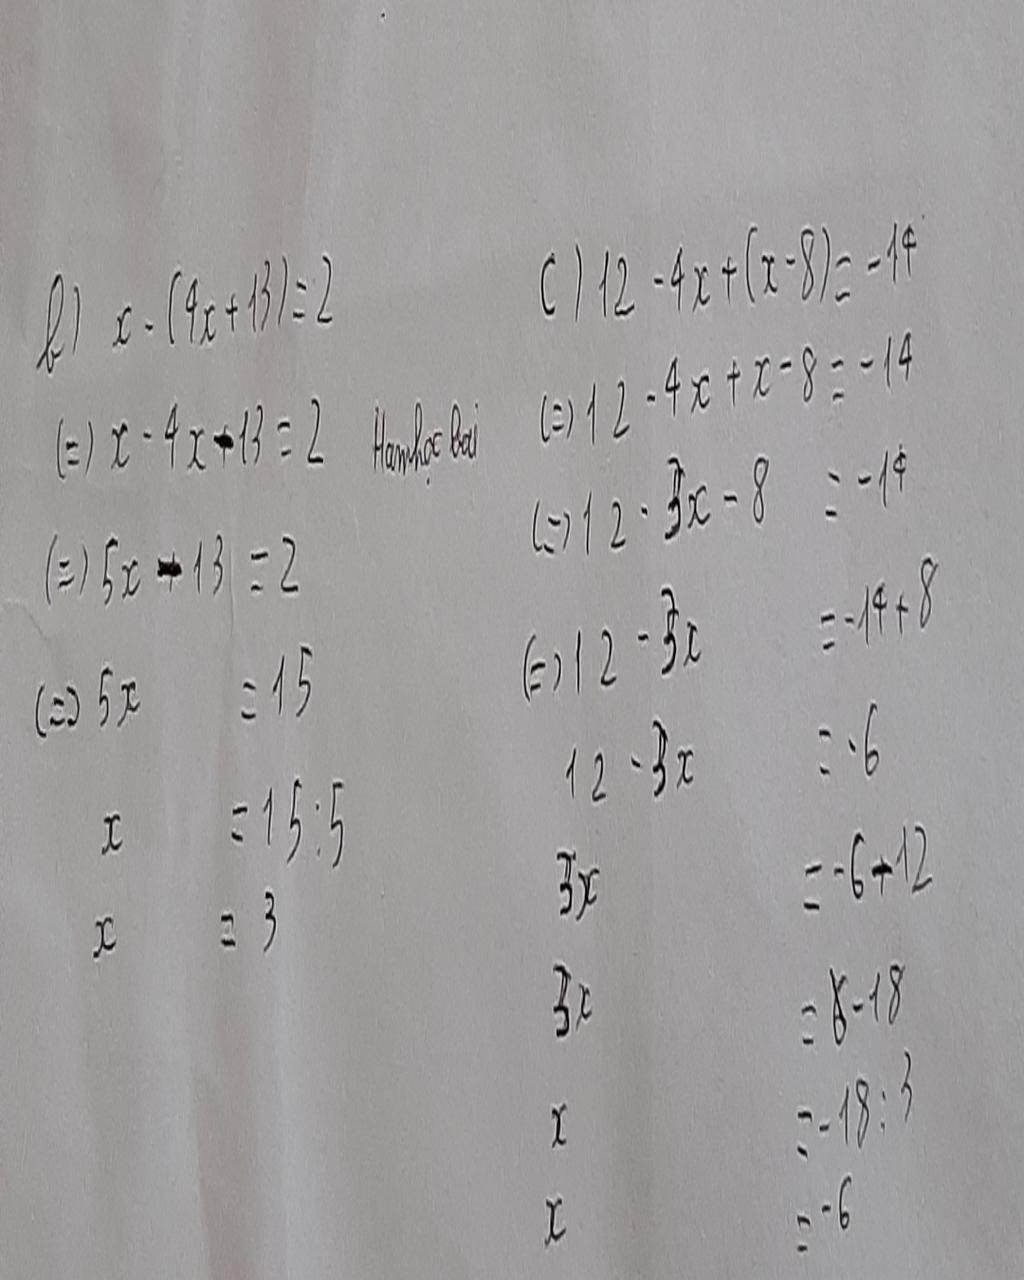 b) x - (4x + 13) = 2
(=) x - 4x - 13 = 2
(=) 5x - 13 = 2
(=) 5x = 15
x = 15 : 5
x = 3
Hamhọc Bài
C) 12 - 4x + (x - 8) = -14
(=) 12 - 4x + x - 8 = -14
(=) 12 - 3x - 8 = -14
(=) 12 - 3x = -14 + 8
12 - 3x = -6
3x = -6 - 12
3x = -18
x = -18 : 3
x = -6